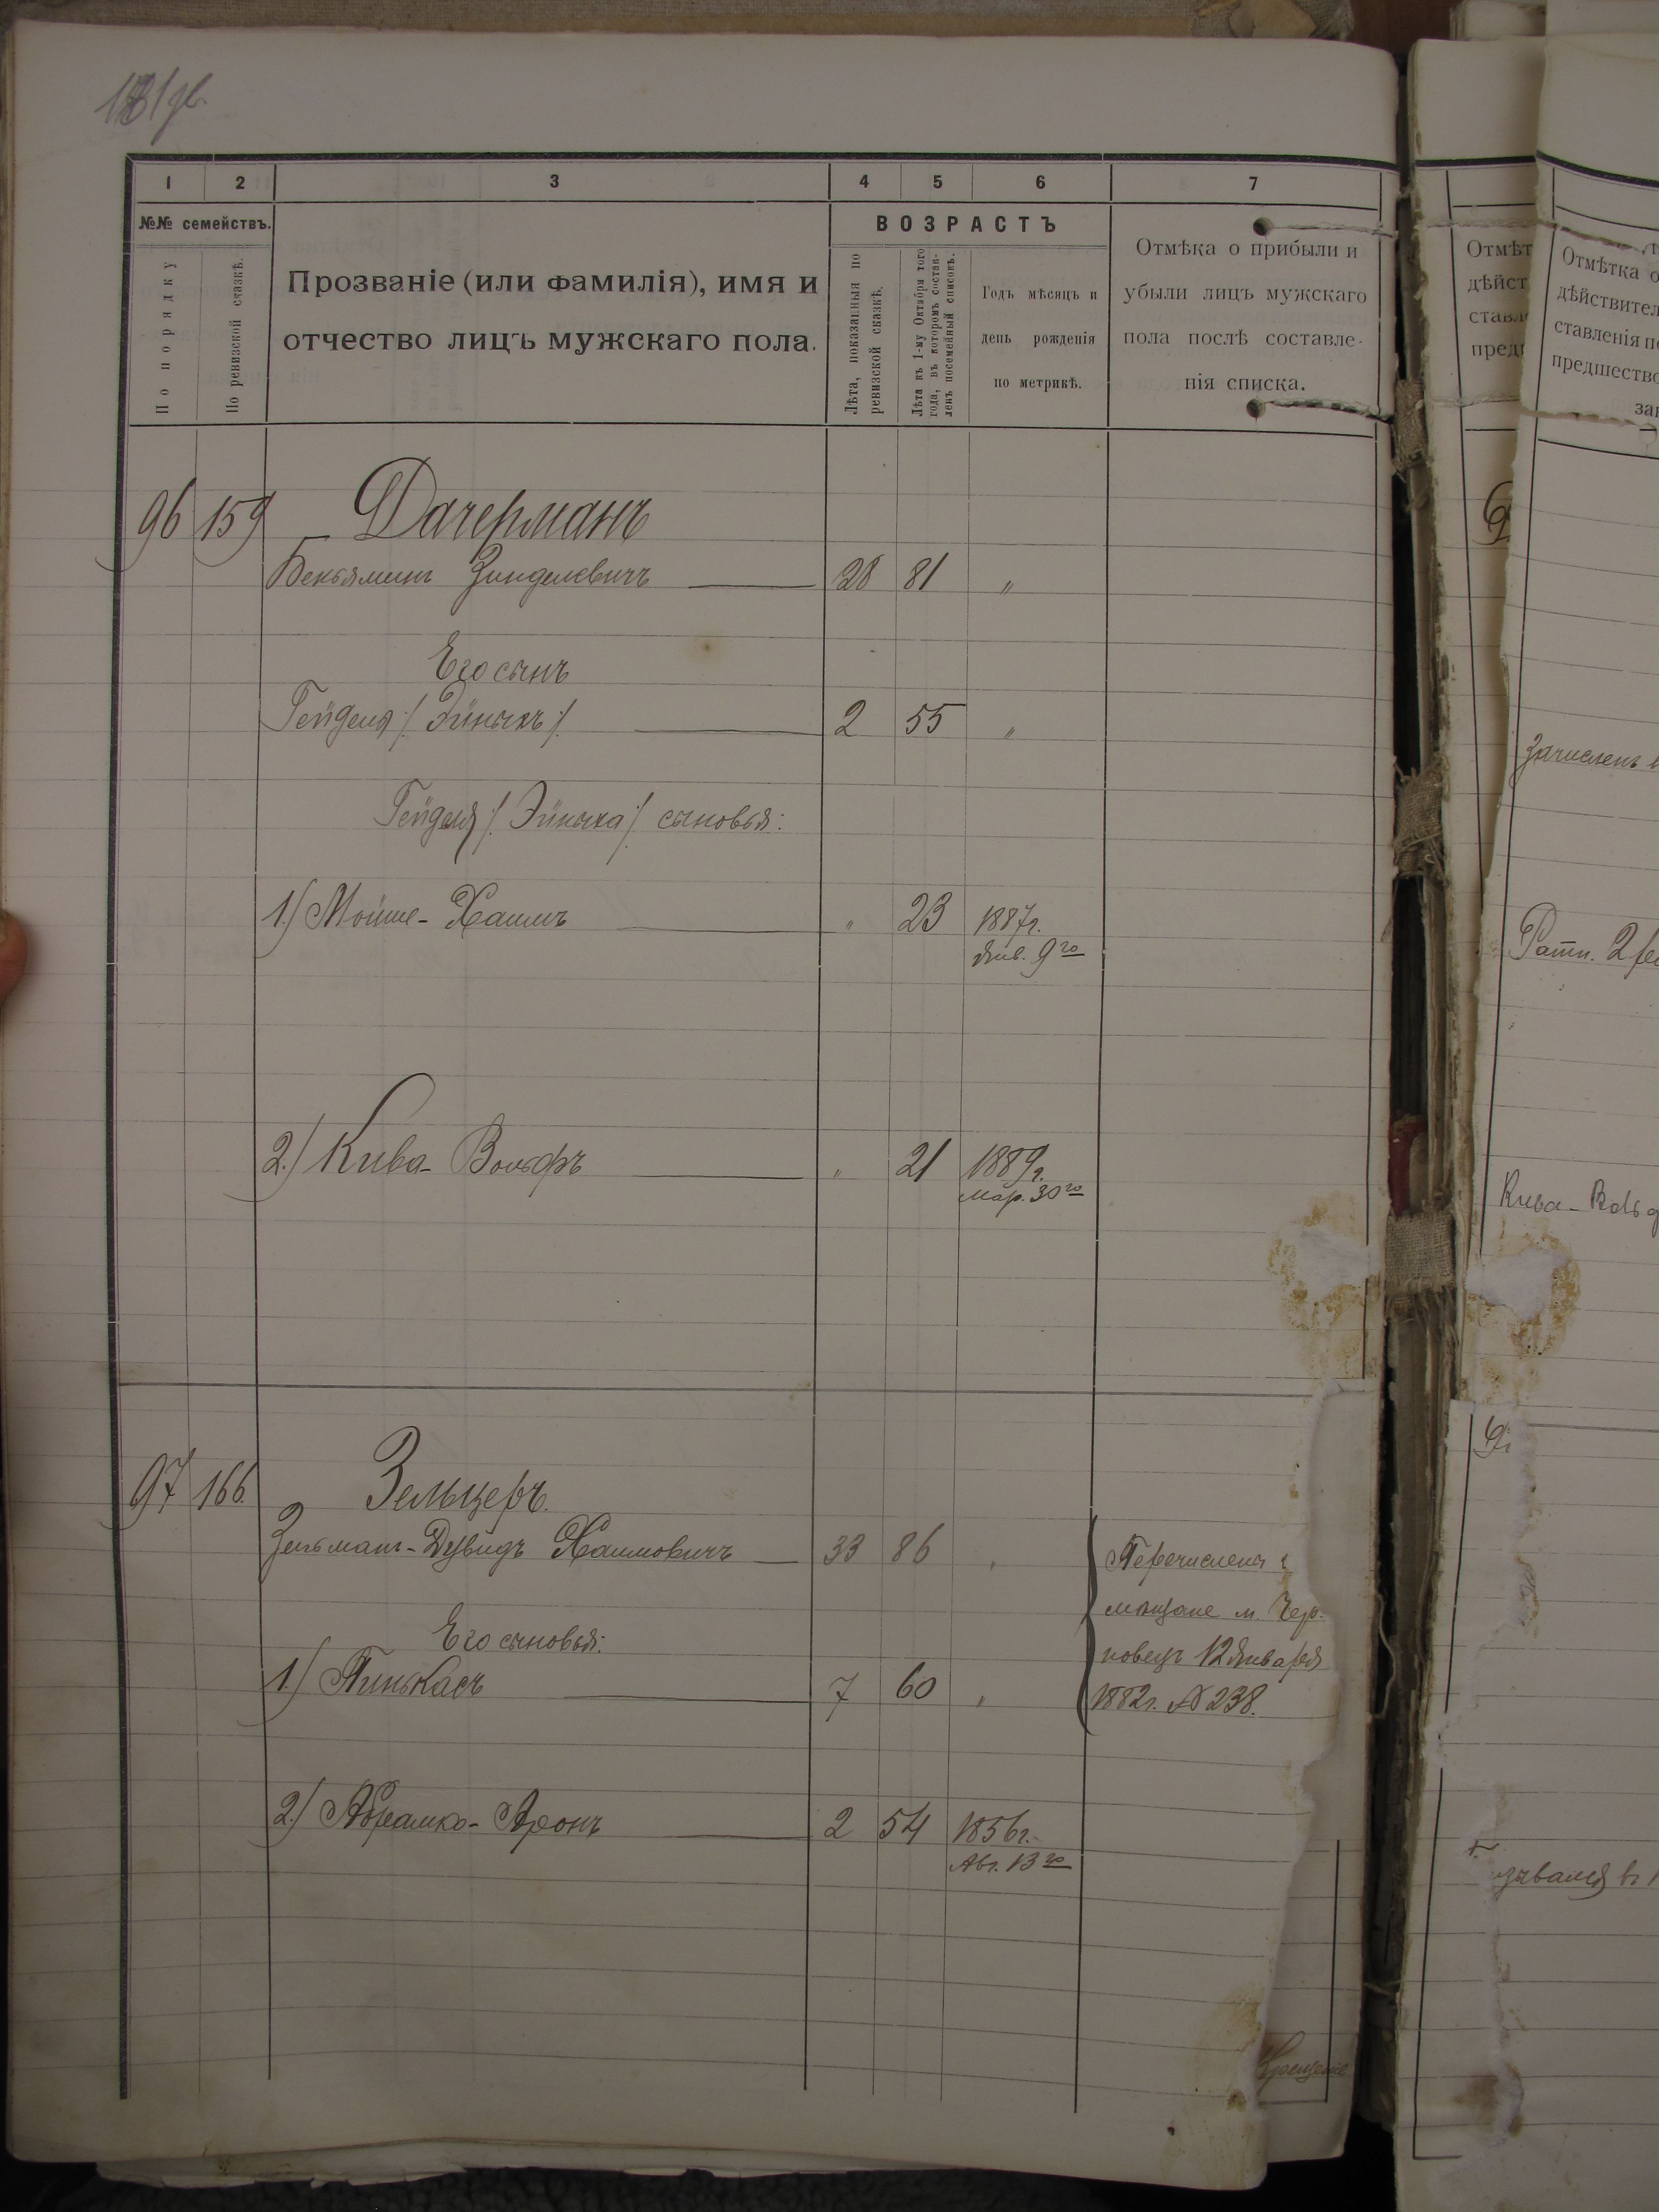 1 2 3 4 5 6 7
№№ семействъ.
По порядку
По ревизской сказкѣ.
Прозваніе (или фамилія), имя и
отчество лицъ мужскаго пола.
ВОЗРАСТЪ
Лѣта, показанныя по
ревизской сказкѣ.
Лѣта къ 1-му Октября того
года, въ которомъ состав-
ленъ посемейный списокъ.
Годъ мѣсяцъ и
день рожденія
по метрикѣ.
Отмѣка о прибыли и
убыли лицъ мужскаго
пола послѣ составле-
нія списка.
96 159 Дачерманъ
Беньяминъ Зинделевичъ 28 81 "
Его сынъ
Гейдель /:Эйныхъ:/ 2 55 "
Гейделя /:Эйныха:/ сыновья:
1.) Мойше-Хаимъ " 23 1887г.
Янв. 9го
2.) Кива-Вольфъ " 21 1889г.
Мар. 30го
97 166. Зельцеръ.
Зельманъ-Дувидъ Хаимовичъ 33 86 "
Перечислены
мѣщане м. Чер-
новецъ 12 Января
1882г. №238.
Его сыновья:
1.) Пинькасъ 7 60 "
2.) Абрамко-Аронъ 2 54 1856г.
Авг. 13го
Отмѣт
дѣйст
ставл
пред
Отмѣтка о
дѣйствител
ставленія по
предшество
зак
Зачисленъ
Ратн. 2
Кива-Воль